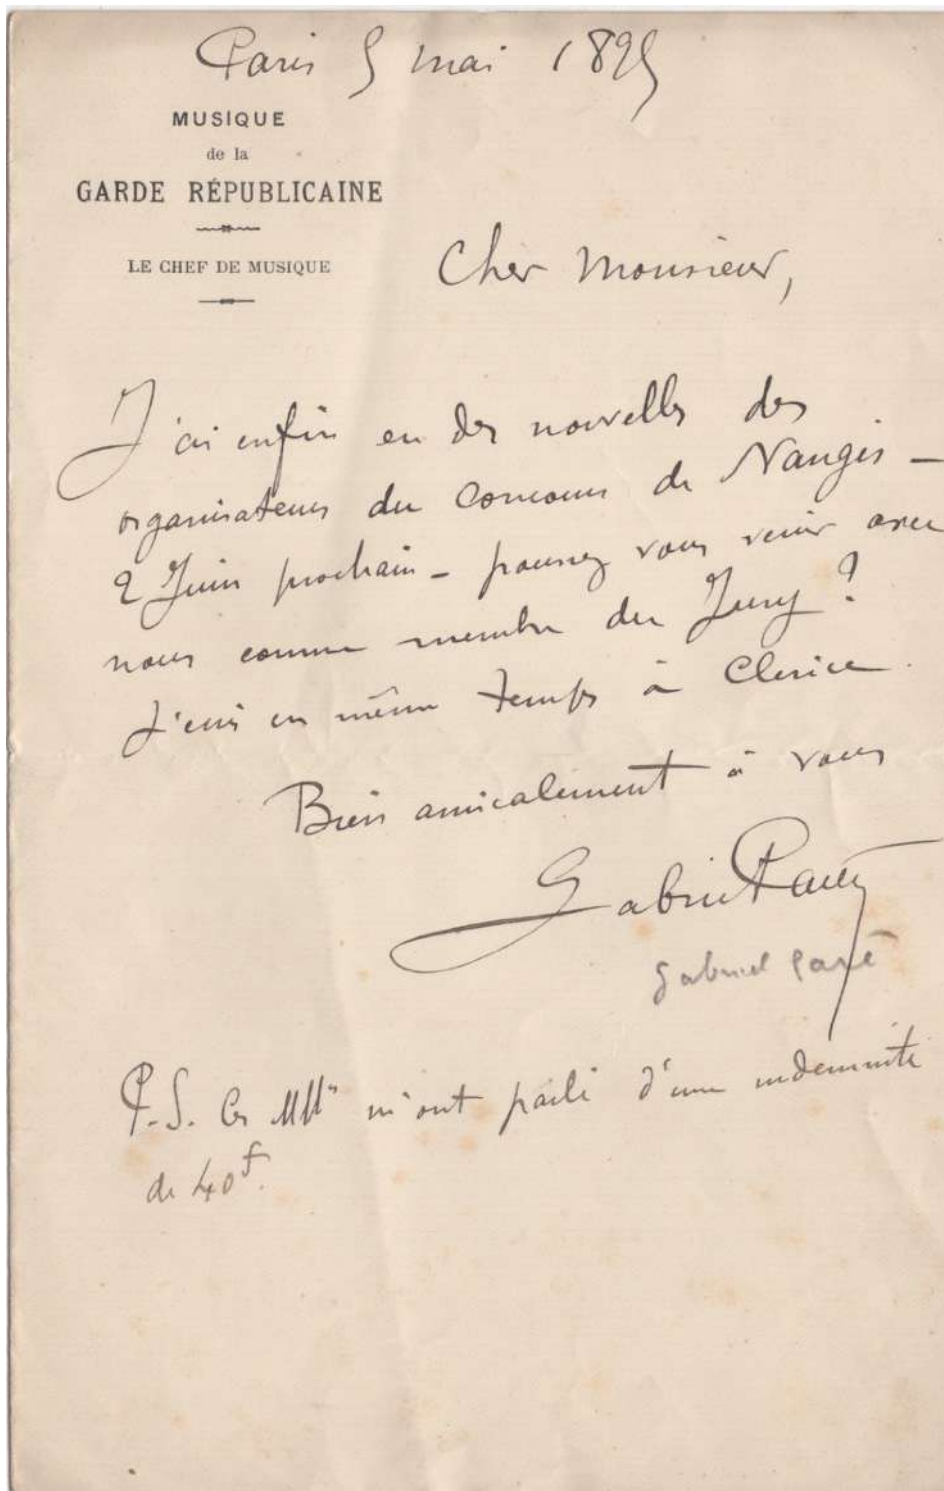 Paris 5 mai 1895
MUSIQUE
de la
GARDE RÉPUBLICAINE
LE CHEF DE MUSIQUE
Cher Monsieur,
J'ai enfin eu des nouvelles des
organisateurs du Concours de Nangis –
2 Juin prochain – pouvez vous venir avec
nous comme membre du Jury ?
J'écris en même temps à Clerice.
Bien amicalement à vous
Gabriel Parès
gabriel parès
P.S. Ces MMrs m'ont parlé d'une indemnité
de 40f.